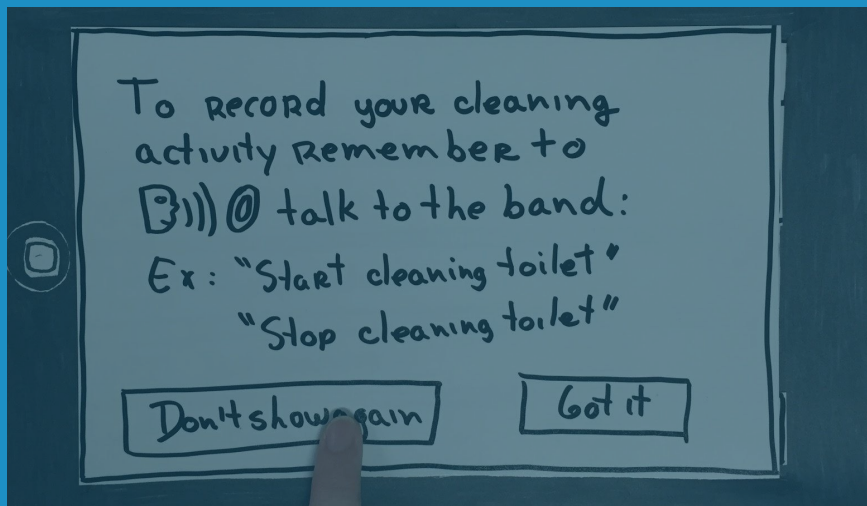 To record your cleaning
activity remember to
talk to the band:
Ex: "Start cleaning toilet"
"Stop cleaning toilet"
Don't show again
Got it